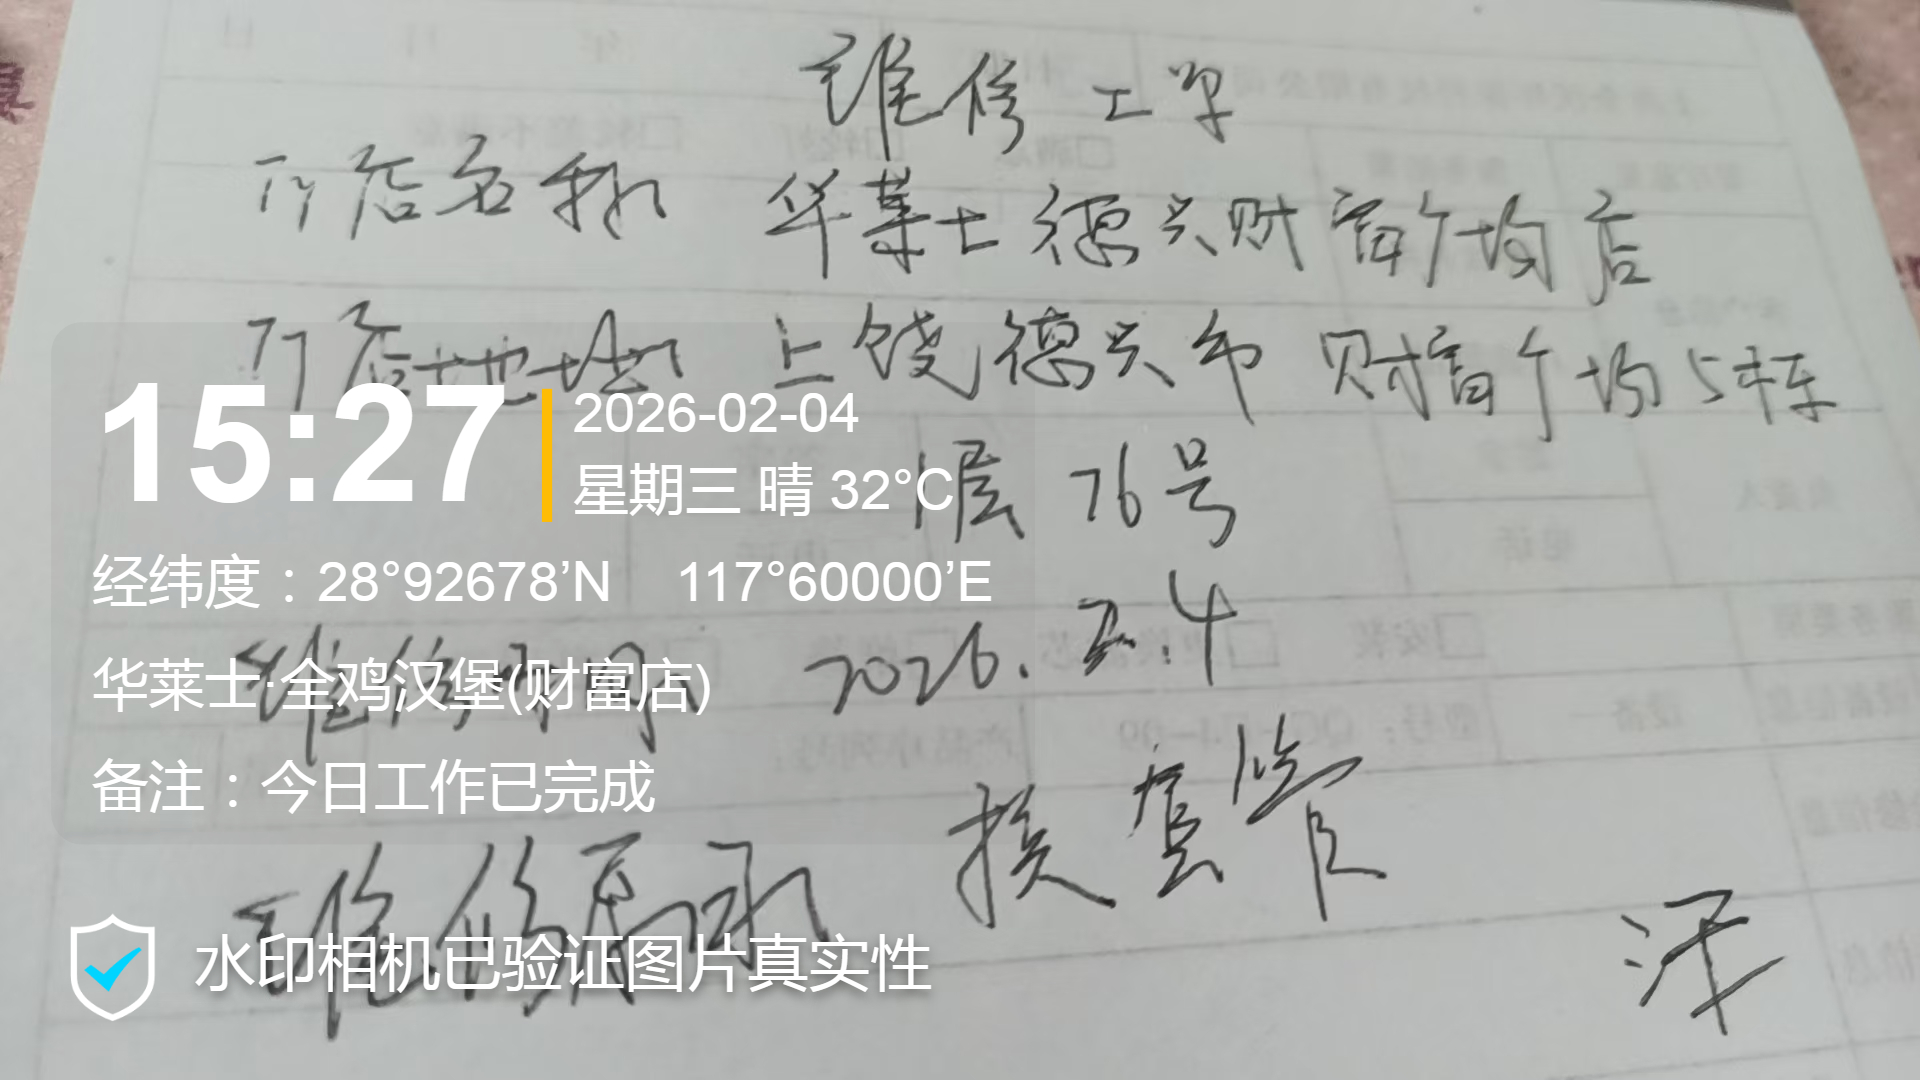 维修工单
门店名称 华莱士德兴财富广场店
门店地址 上饶德兴市财富广场5栋
1层 76号
15:27
2026-02-04
星期三 晴 32°C
经纬度：28°92678’N 117°60000’E
维修时间 2026.2.4
华莱士·全鸡汉堡(财富店)
备注：今日工作已完成
换套管
维修
水印相机已验证图片真实性